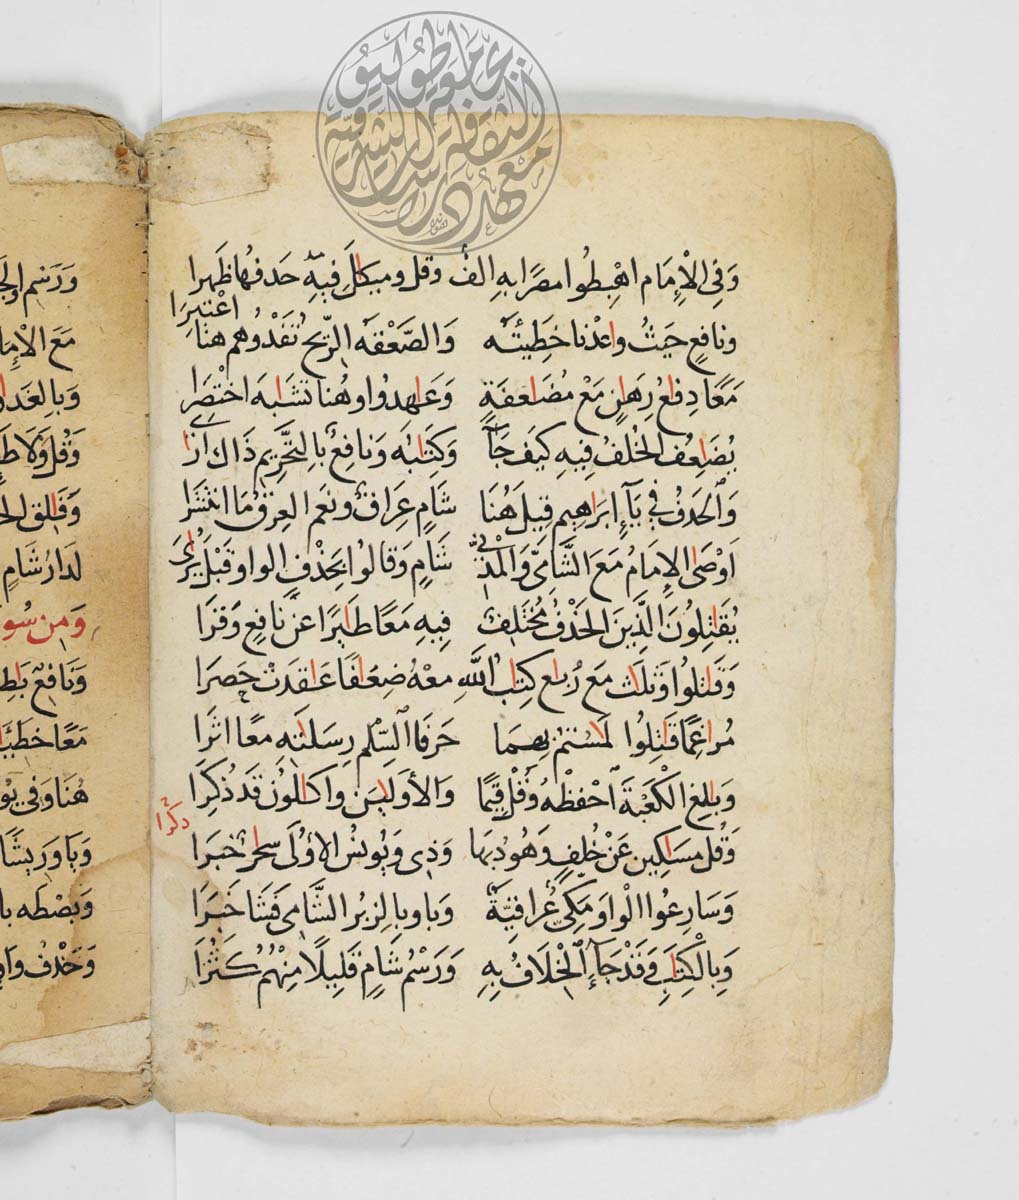 معهد الثقافة والدراسات الشرقية جامعة طوكيو
وَفِي الْإِمَامِ اهْبِطُوا مِصْرًا بِهِ الف وقل وميكال فيه حذفها ظهرا
ونافع حيث واعدنا خطيئته والصعقه الريح تفدوهم هنا اعتبرا
معا دفاع رهان مع مضاعفة وعاهدوا وهنا تشابه اختصرا
يضاعف الخلف فيه كيف جا وكتابه ونافع بالتحريم ذاك ارا
والحذف في يا إبراهيم قيل هنا شام عراق ونعم العرق ما انتشرا
اوصى الإمام مع الشامي والمدني شام وقالوا بحذف الواو قبل يرى
يقاتلون الذين الحذف مختلف فيه معا طايرا عن نافع وقرا
وقاتلوا وثلاث مع رباع كتاب الله معه ضعافا عاقدت حصرا
مراغما قاتلوا لامستم بهما حرفا السلم رسالته معا اثرا
وبالغ الكعبة احفظه وقل قيما والأولين واكالون قد ذكرا
ذكرا
وقل مساكين عن خلف وهود بها وذي ويونس الأولى ساحر خبرا
وسارعوا الواو مكي عراقية وبا وبالزبر الشامي فشا خبرا
وبالكتاب وقد جاء الخلاف به ورسم شام قليلا منهم كثرا
ورسم والج
مع الإما
وبالغدا
وقل ولا طا
وفالق الح
لدار شام
ومن سو
ونافع با
معا خطيا
هنا وفي يو
ويا وريشا
وبصطه با
وحذف وا